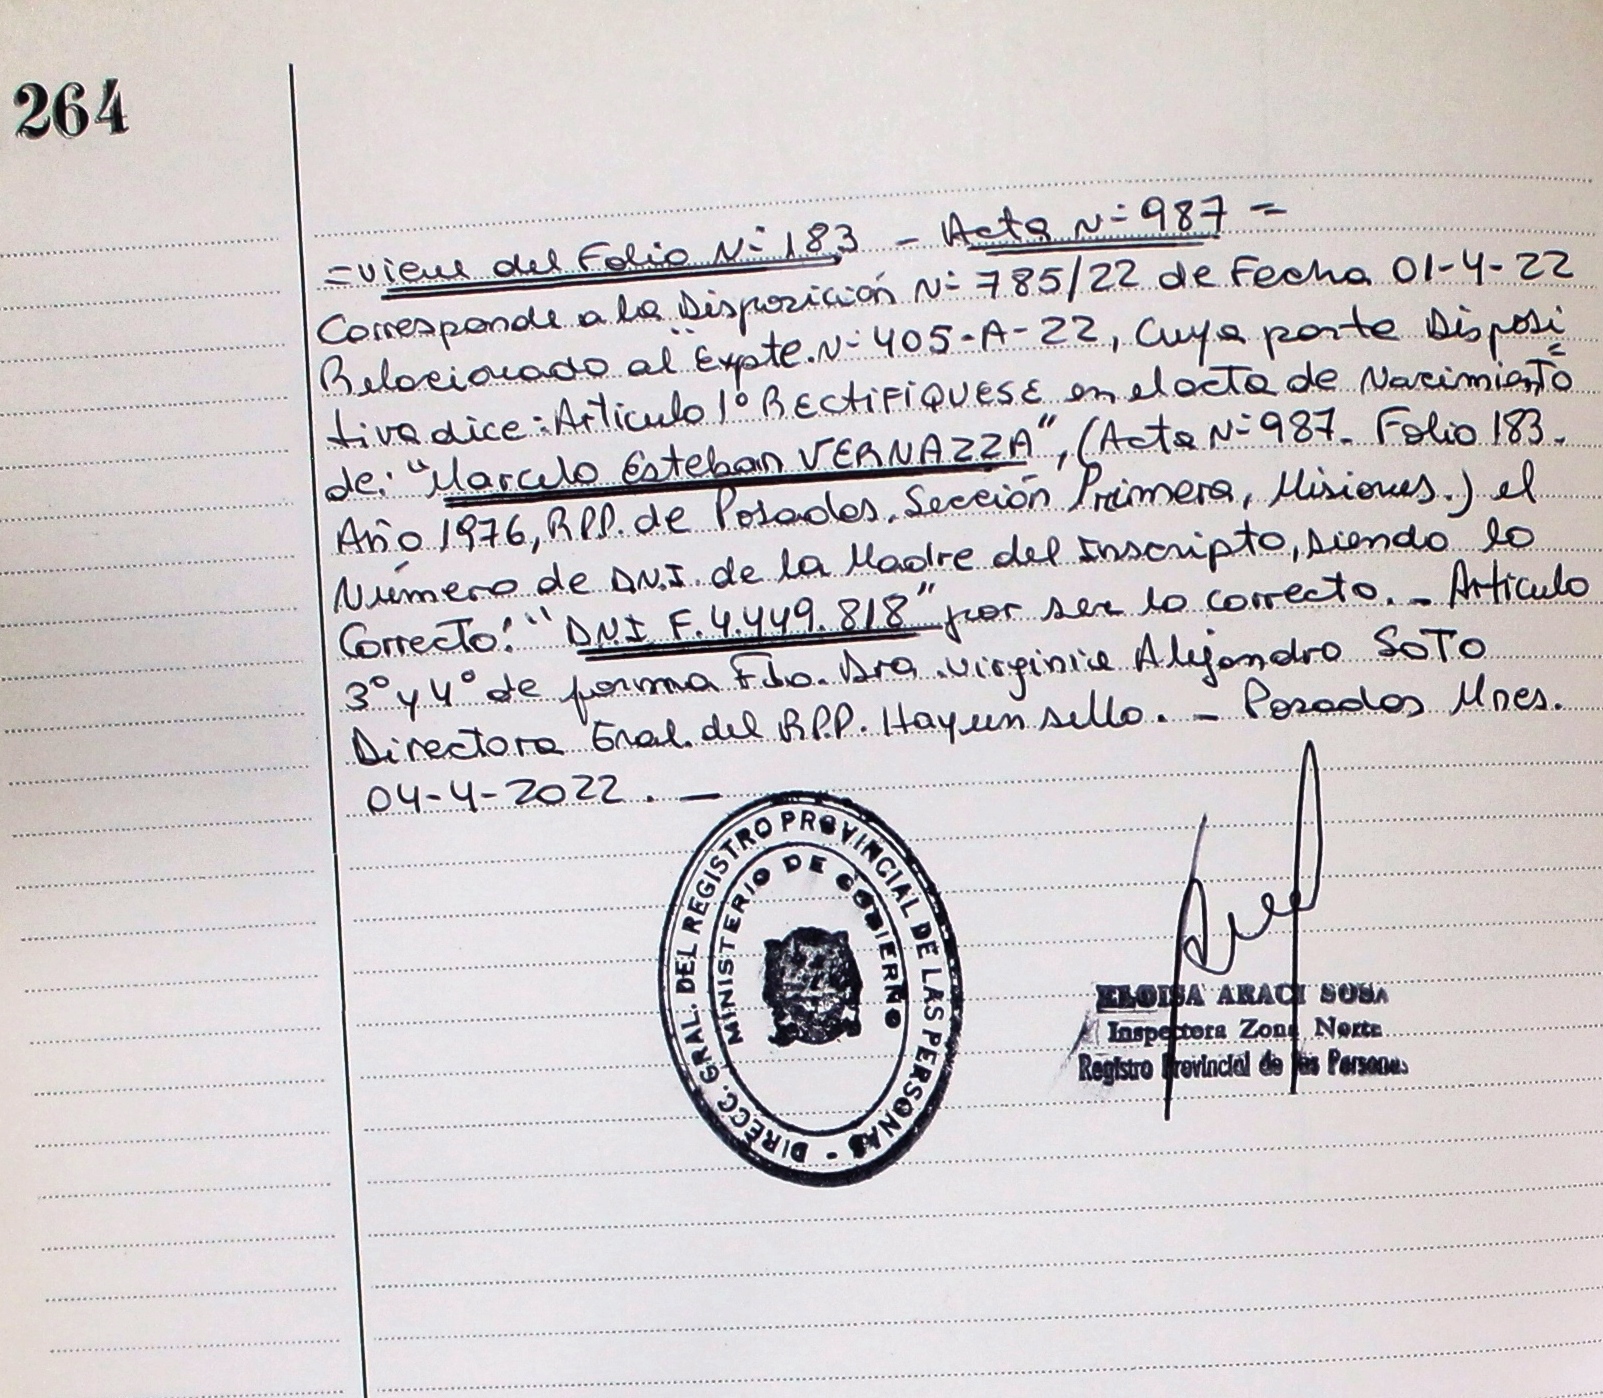 264
=viene del Folio Nº 183 - Acta Nº 987=
Corresponde a la Disposición Nº 785/22 de Fecha 01-4-22
Relacionado al "Expte. Nº 405-A-22, Cuya parte Disposi=
tiva dice: Artículo 1º RECTIFIQUESE en el acta de Nacimiento
de: "Marcelo Esteban VERNAZZA", (Acta Nº 987. Folio 183.
Año 1976, R.P.P. de Posadas, Sección Primera, Misiones.) el
Número de D.N.I. de la Madre del Inscripto, siendo lo
Correcto: "D.N.I F. 4.449.818" por ser lo correcto. - Artículo
3º y 4º de forma Fdo. Dra. Virginia Alejandra SOTO
Directora Gral. del R.P.P. Hay un sello. - Posadas Mnes.
04-4-2022. -
DIRECC. GRAL. DEL REGISTRO PROVINCIAL DE LAS PERSONAS -
MINISTERIO DE GOBIERNO
ELOISA ARACI SOSA
Inspectora Zona Norte
Registro Provincial de las Personas